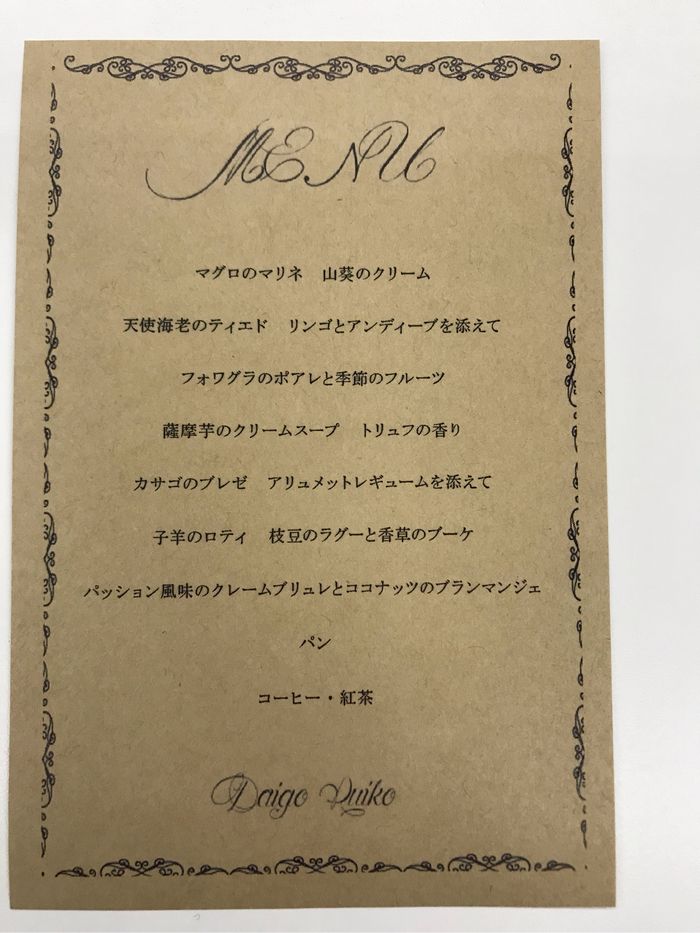 MENU
マグロのマリネ　山葵のクリーム
天使海老のティエド　リンゴとアンディーブを添えて
フォワグラのポアレと季節のフルーツ
薩摩芋のクリームスープ　トリュフの香り
カサゴのブレゼ　アリュメットレギュームを添えて
子羊のロティ　枝豆のラグーと香草のブーケ
パッション風味のクレームブリュレとココナッツのブランマンジェ
パン
コーヒー・紅茶
Daigo